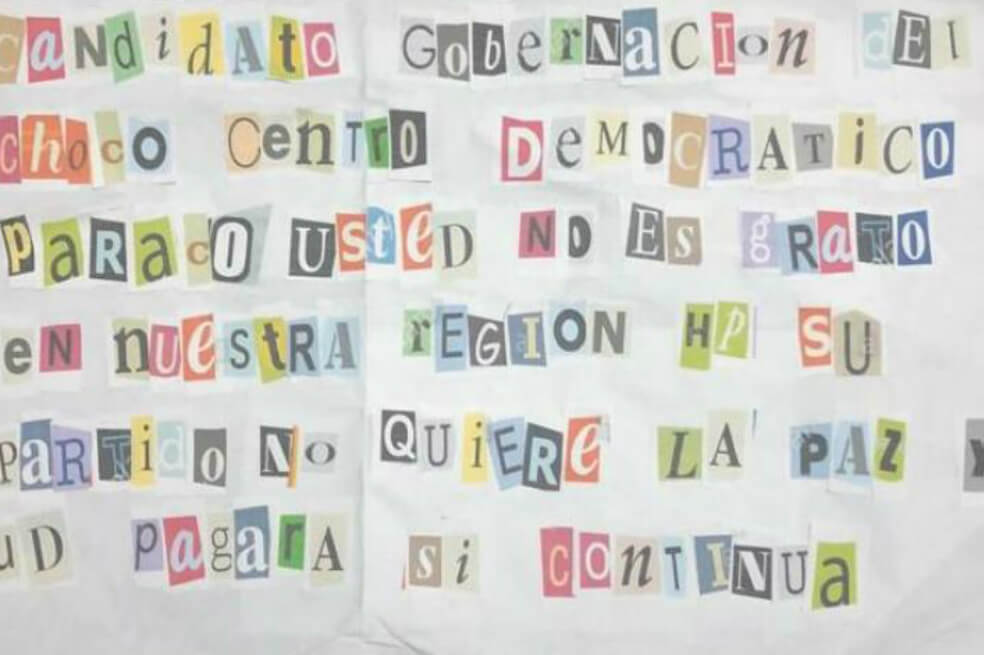 candidato Gobernacion del
choco Centro Democratico
paraco usted no es grato
en nuestra region HP su
partido no quiere la paz y
uD pagara si continua